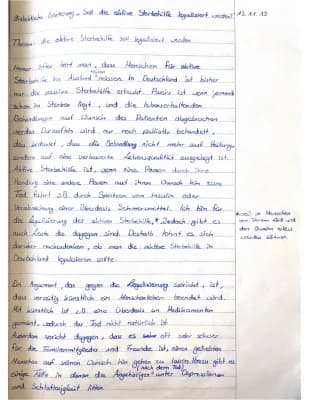 dialektische Erörterung - Soll die aktive Sterbehilfe legalisiert werden? 13.11.19
These: die aktive Sterbehilfe soll legalisiert werden
Immer öfter hört man, dass Menschen für aktive
Sterbehilfe ins Ausland reisen müssen. In Deutschland ist bisher
nur die passive Sterbehilfe erlaubt. Passiv ist wenn jemand
schon im Sterben liegt, und die lebenserhaltenden
Behandlungen auf Wunsch des Patienten abgebrochen
werden. Daraufhin wird nur noch palliativ behandelt,
das bedeutet, dass die Behandlung nicht mehr auf Heilung,
sondern auf eine verbesserte Lebensqualität ausgelegt ist.
Aktive Sterbehilfe ist, wenn eine Person durch ihre
Handlung eine andere Person auf ihren Wunsch hin zum
Tod führt z.B. durch Spritzen von Insulin oder
Verabreichung einer Überdosis Schmerzmittel. Ich bin für
die Legalisierung der aktiven Sterbehilfe,* Jedoch gibt es
*weil so Menschen
von ihrem Leid und
den Qualen erlöst
werden können.
auch Leute die dagegen sind. Deshalb lohnt es sich
darüber nachzudenken, ob man die aktive Sterbehilfe in
Deutschland legalisieren sollte.
Ein Argument, das gegen die Legalisierung spricht, ist,
dass vorzeitig künstlich ein Menschenleben beendet wird.
Mit künstlich ist z.B. eine Überdosis an Medikamenten
gemeint, wodurch der Tod nicht natürlich ist.
Außerdem spricht dagegen, dass es sehr oft sehr schwer
für die Familienmitglieder und Freunde ist, einen geliebten
Menschen auf seinen Wunsch hin gehen zu lassen. Hierzu gibt es
einige Fälle in denen die Angehörigen (nach dem Tod) unter Depressionen
und Schlaflosigkeit litten.